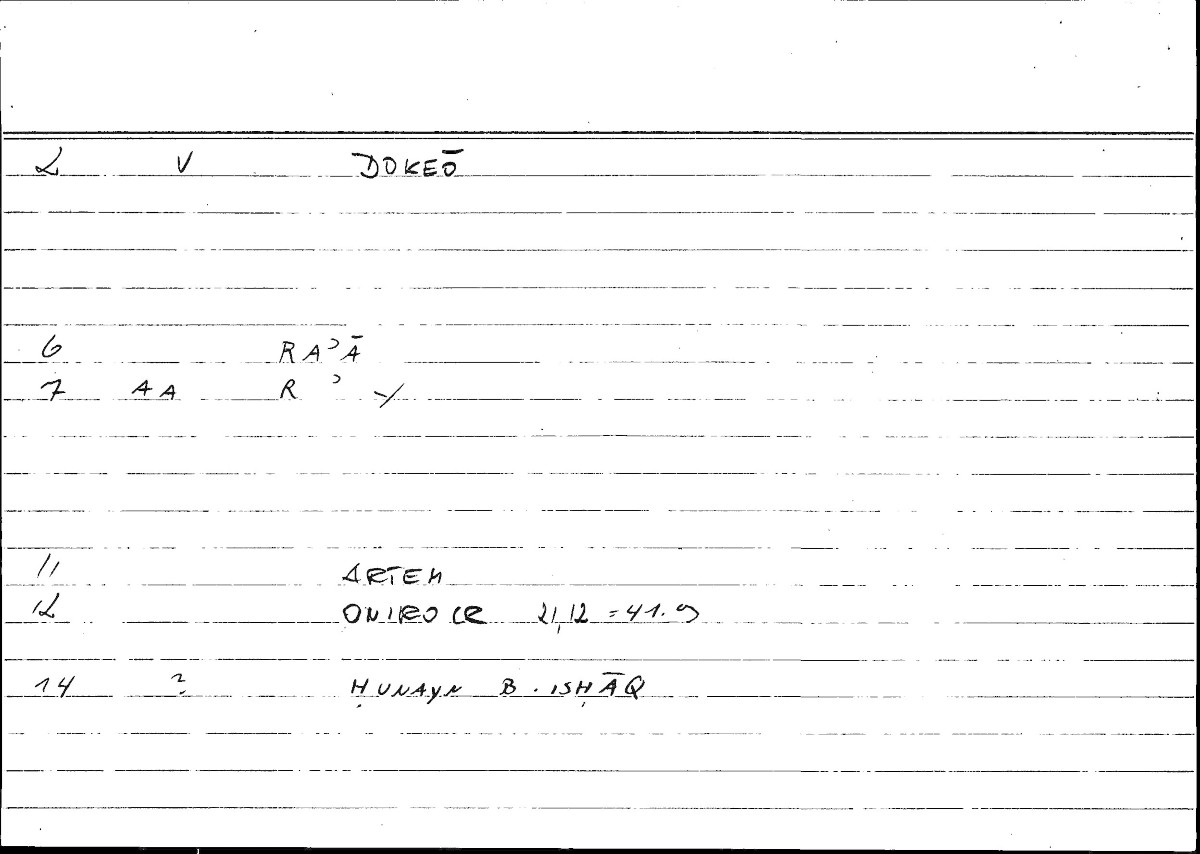 2 V DOKEŌ
6 RAʾĀ
7 AA R ʾ -/
11 ARTEM
12 ONIROCR 21,12 = 41.9
14 ? ḤUNAYN B. ISḤĀQ